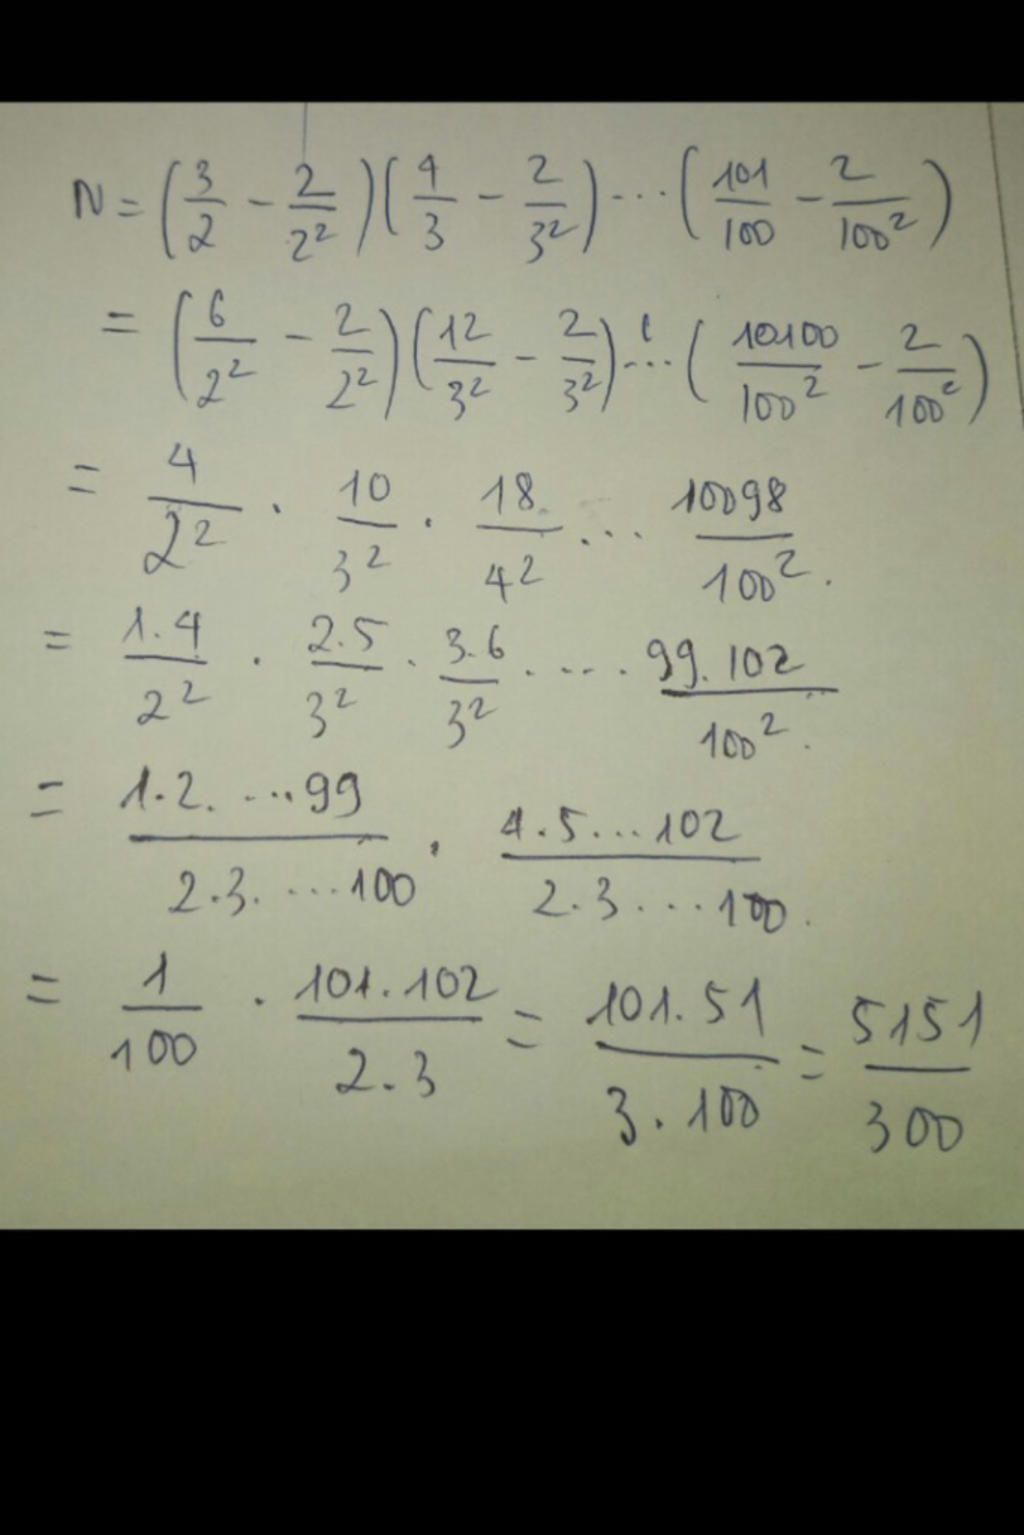 N = (3/2 - 2/2²)(4/3 - 2/3²)...(101/100 - 2/100²)
= (6/2² - 2/2²)(12/3² - 2/3²)...(10100/100² - 2/100²)
= 4/2² . 10/3² . 18/4² ... 10098/100².
= 1.4/2² . 2.5/3² . 3.6/3² . .... 99.102/100².
= 1.2. ...99/2.3. ...100 . 4.5...102/2.3...100.
= 1/100 . 101.102/2.3 = 101.51/3.100 = 5151/300